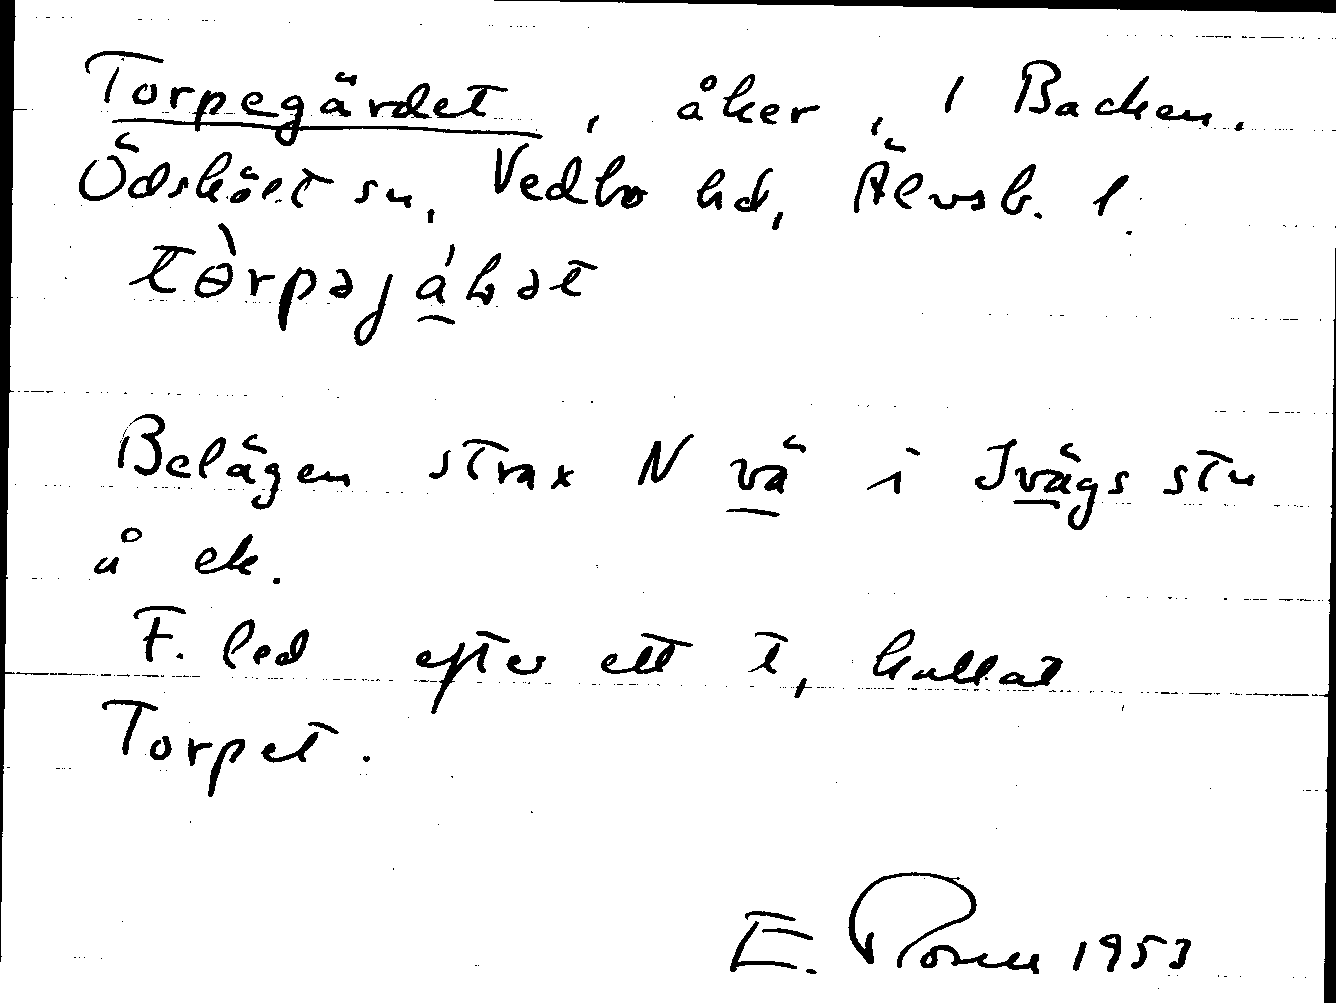 Torpegärdet, åker, 1 Backen.
Ödskölt sn, Vedbo hd, Älvsb. l.
Belägen strax N vä i Ivägs stu
å ek.
F. led efter ett t, kallat
Torpet.
E. 1953